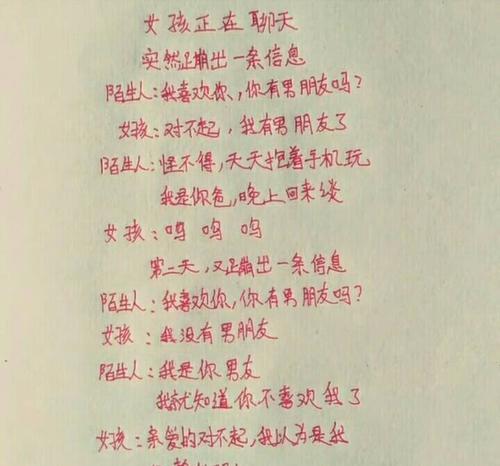 女孩正在聊天
突然蹦出一条信息
陌生人:我喜欢你、,你有男朋友吗?
女孩:对不起,我有男朋友了
陌生人:怪不得,天天抱着手机玩
我是你爸,晚上回来谈
女孩:呜 呜 呜
第二天,又蹦出一条信息
陌生人:我喜欢你,你有男朋友吗?
女孩:我没有男朋友
陌生人:我是你男友
我就知道你不喜欢我了
女孩:亲爱的对不起,我以为是我